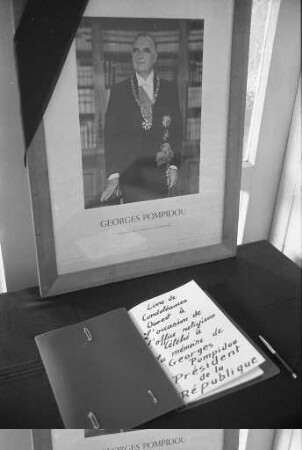 GEORGES POMPIDOU
Livre de
Condoléances
Ouvert à
l'occasion de
l'office religieux
Célébré à
la mémoire de
Georges
Pompidou
Président
de la
République
GEORGES POMPIDOU